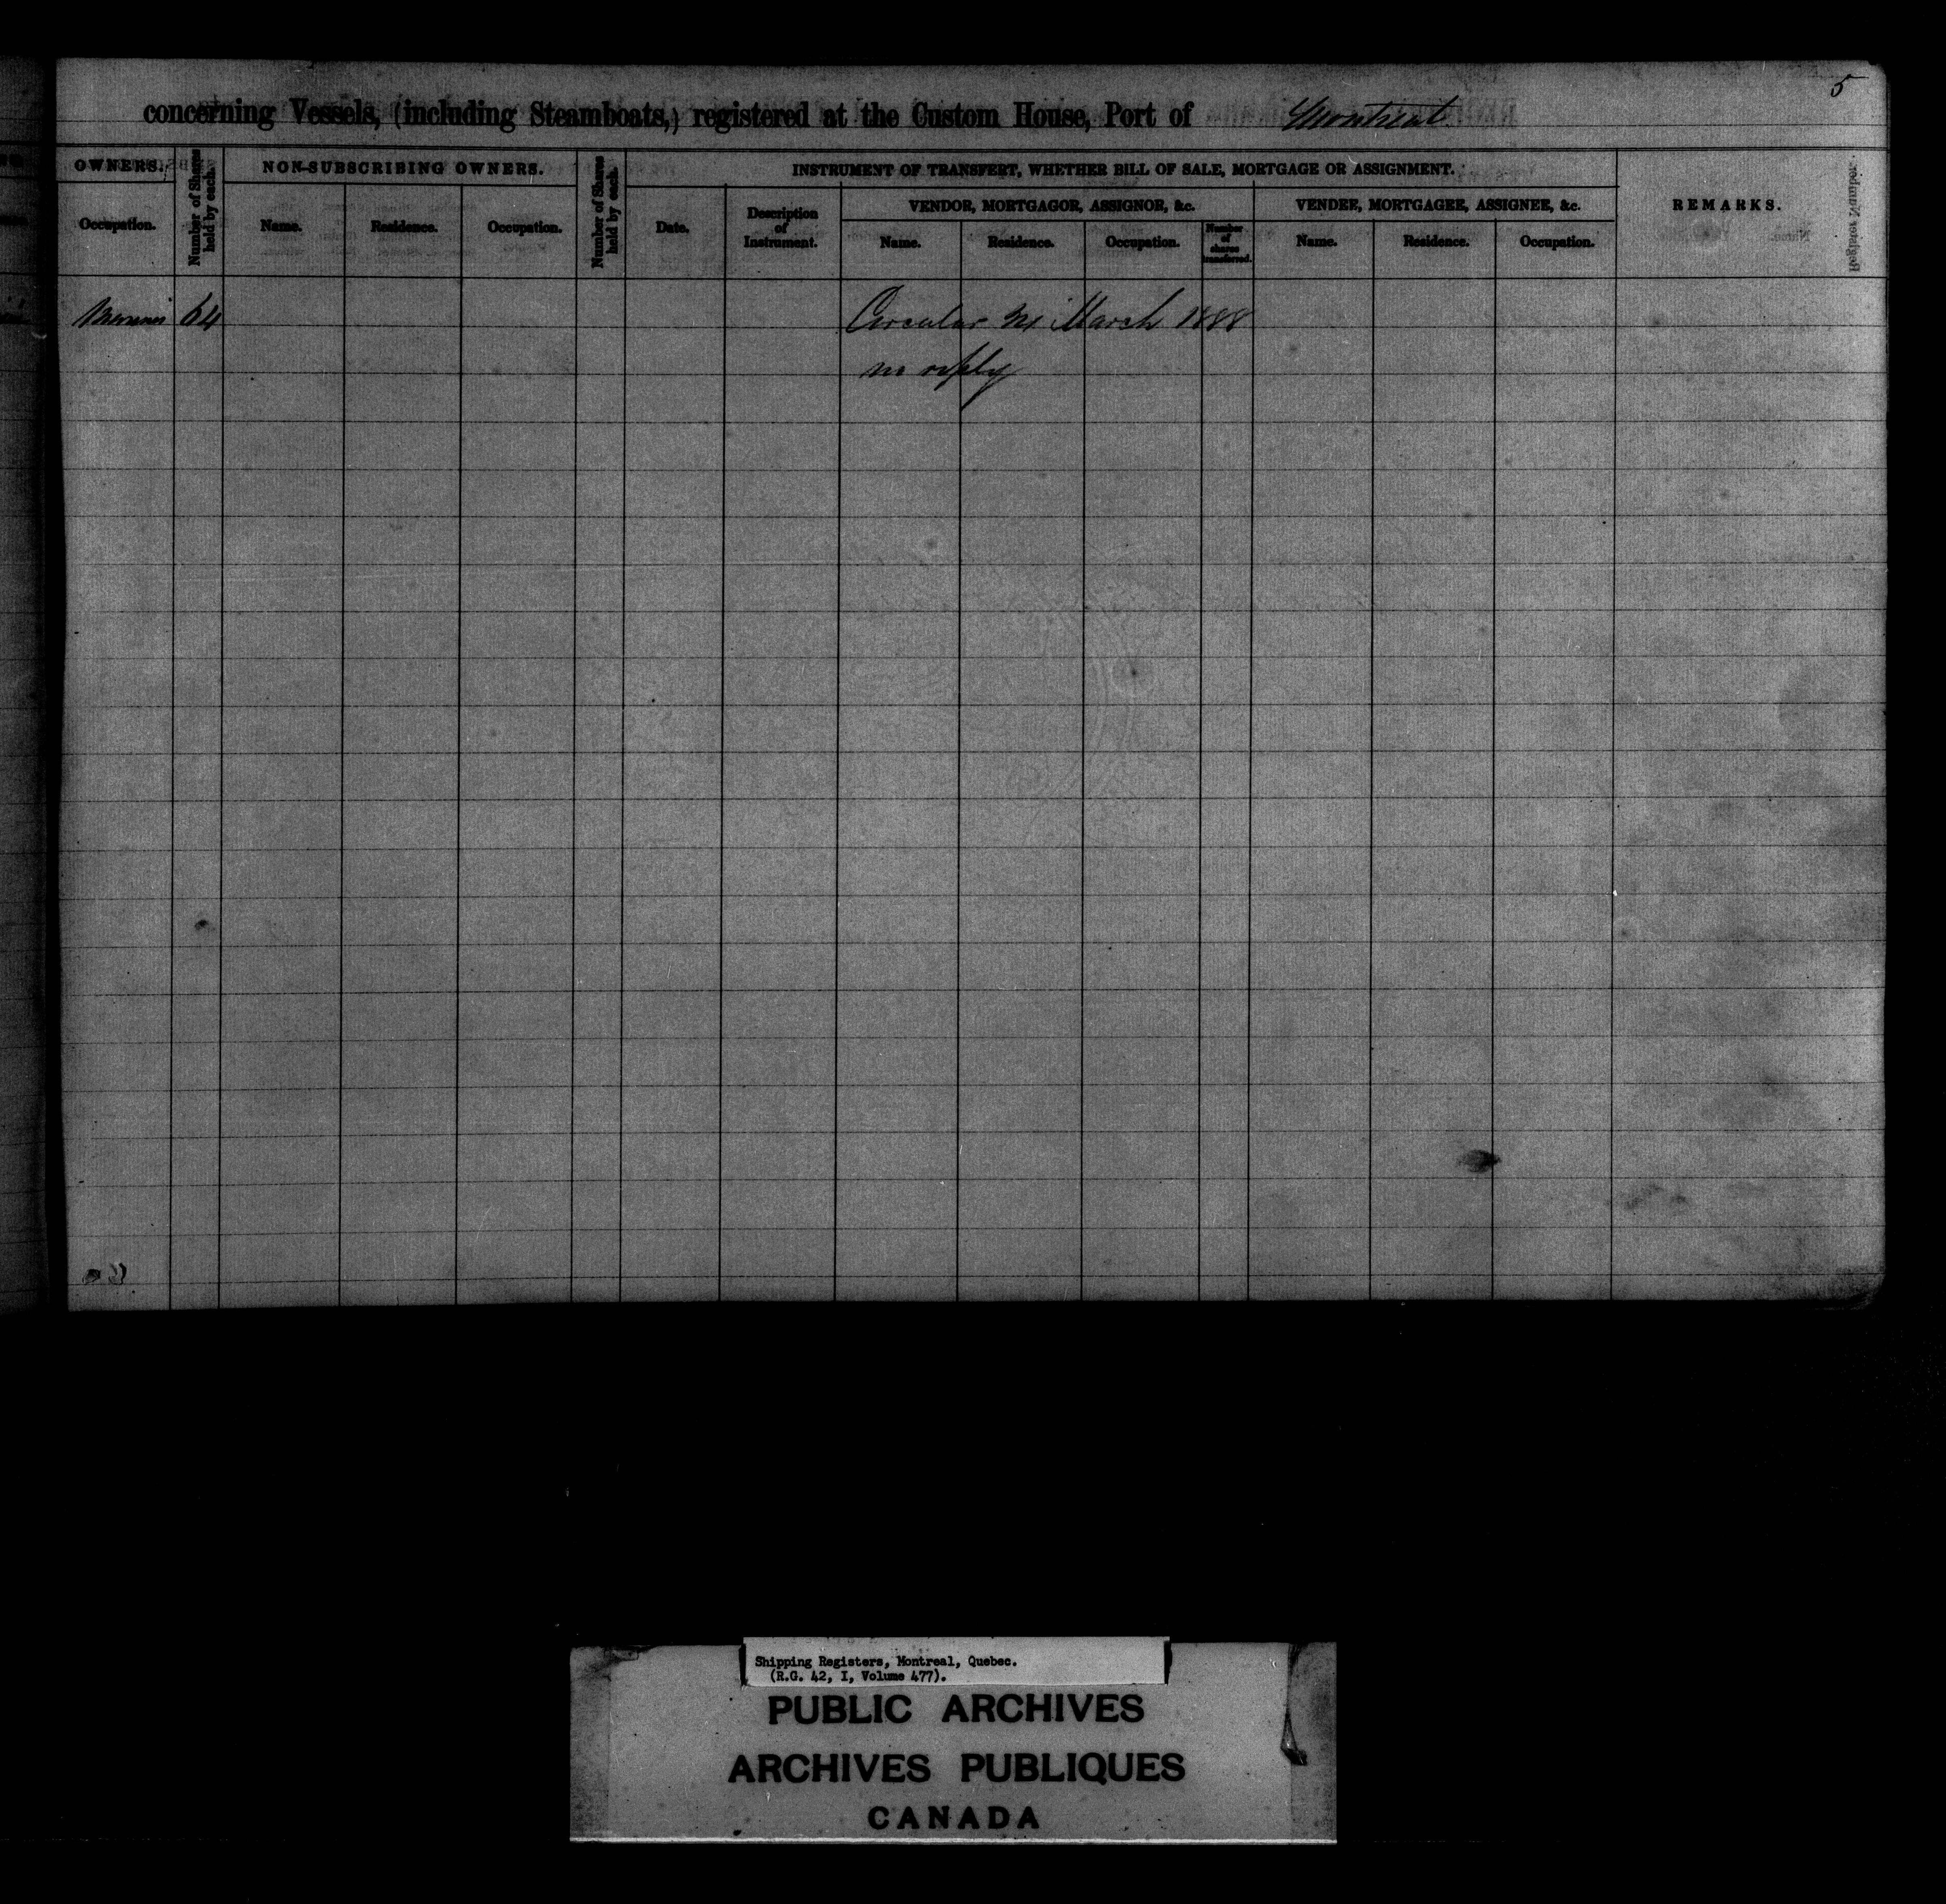 5
concerning Vessels, (including Steamboats,) registered at the Custom House, Port of Montreal
OWNERS.
Number of Shares held by each.
NON-SUBSCRIBING OWNERS.
Number of Shares held by each.
INSTRUMENT OF TRANSFERT, WHETHER BILL OF SALE, MORTGAGE OR ASSIGNMENT.
REMARKS.
VENDOR, MORTGAGOR, ASSIGNOR, &c.
VENDEE, MORTGAGEE, ASSIGNEE, &c.
Occupation.
Name.
Residence.
Occupation.
Date.
Description
of
Instrument.
Name.
Residence.
Occupation.
Number
of
shares
transferred.
Name.
Residence.
Occupation.
64
Circular March 1888
no reply
Shipping Registers, Montreal, Quebec.
(R.G. 42, I, Volume 477).
PUBLIC ARCHIVES
ARCHIVES PUBLIQUES
CANADA